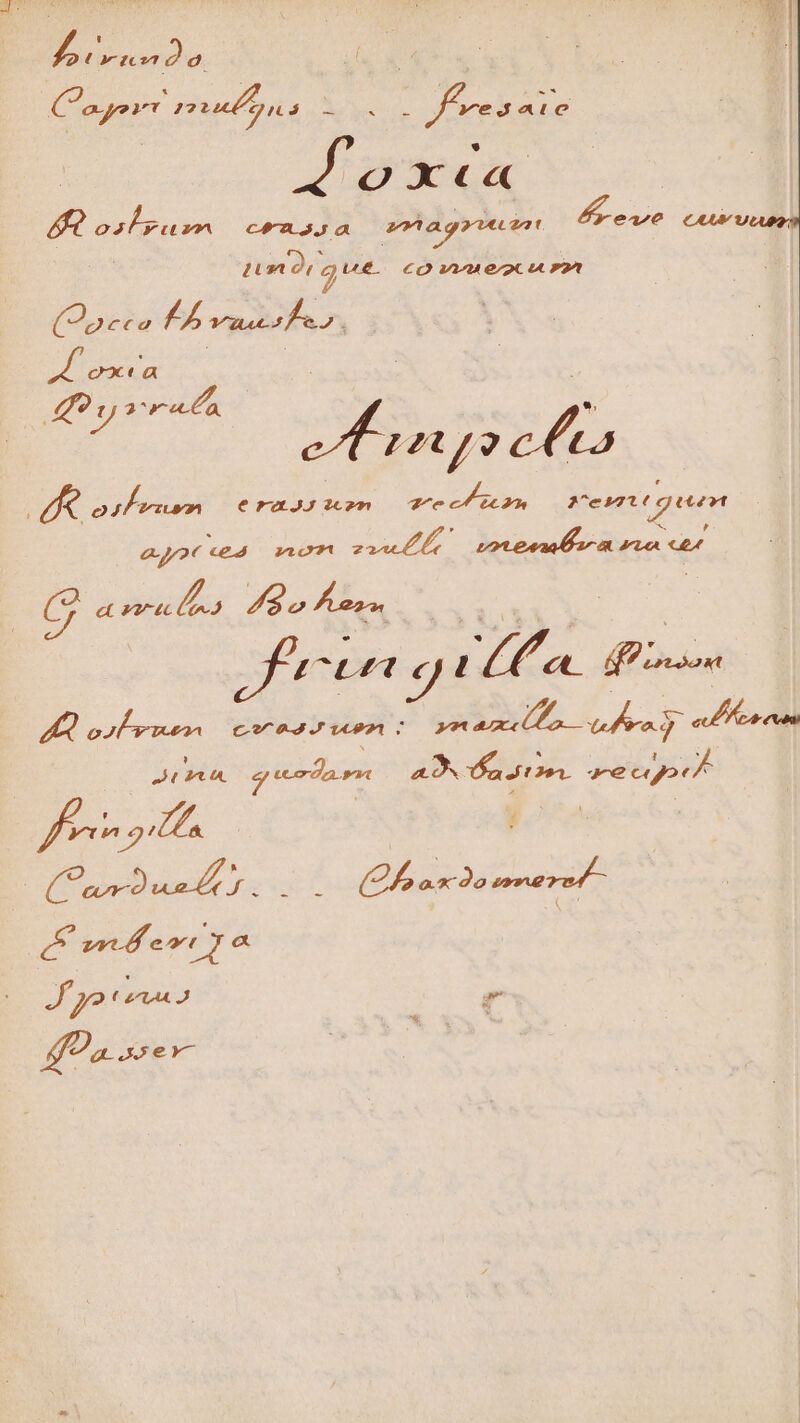 hirundo
Caprimulgus - . - fresaie
Loxia
Rostrum crassa magnum breve curvum
undique convexum
Coccothraustes.
Loxia
Pyrrula
Ampelis
Rostrum crassum rectum remigum
apices non nulli membranaces
Garrulus Bohem
fringilla Pinson
Rostrum crassum: maxilla utraq alteram
sinu quodam ad basim recipit
fringilla
Carduelis. . . Chardonneret
Emberiza
Spinus
Passer